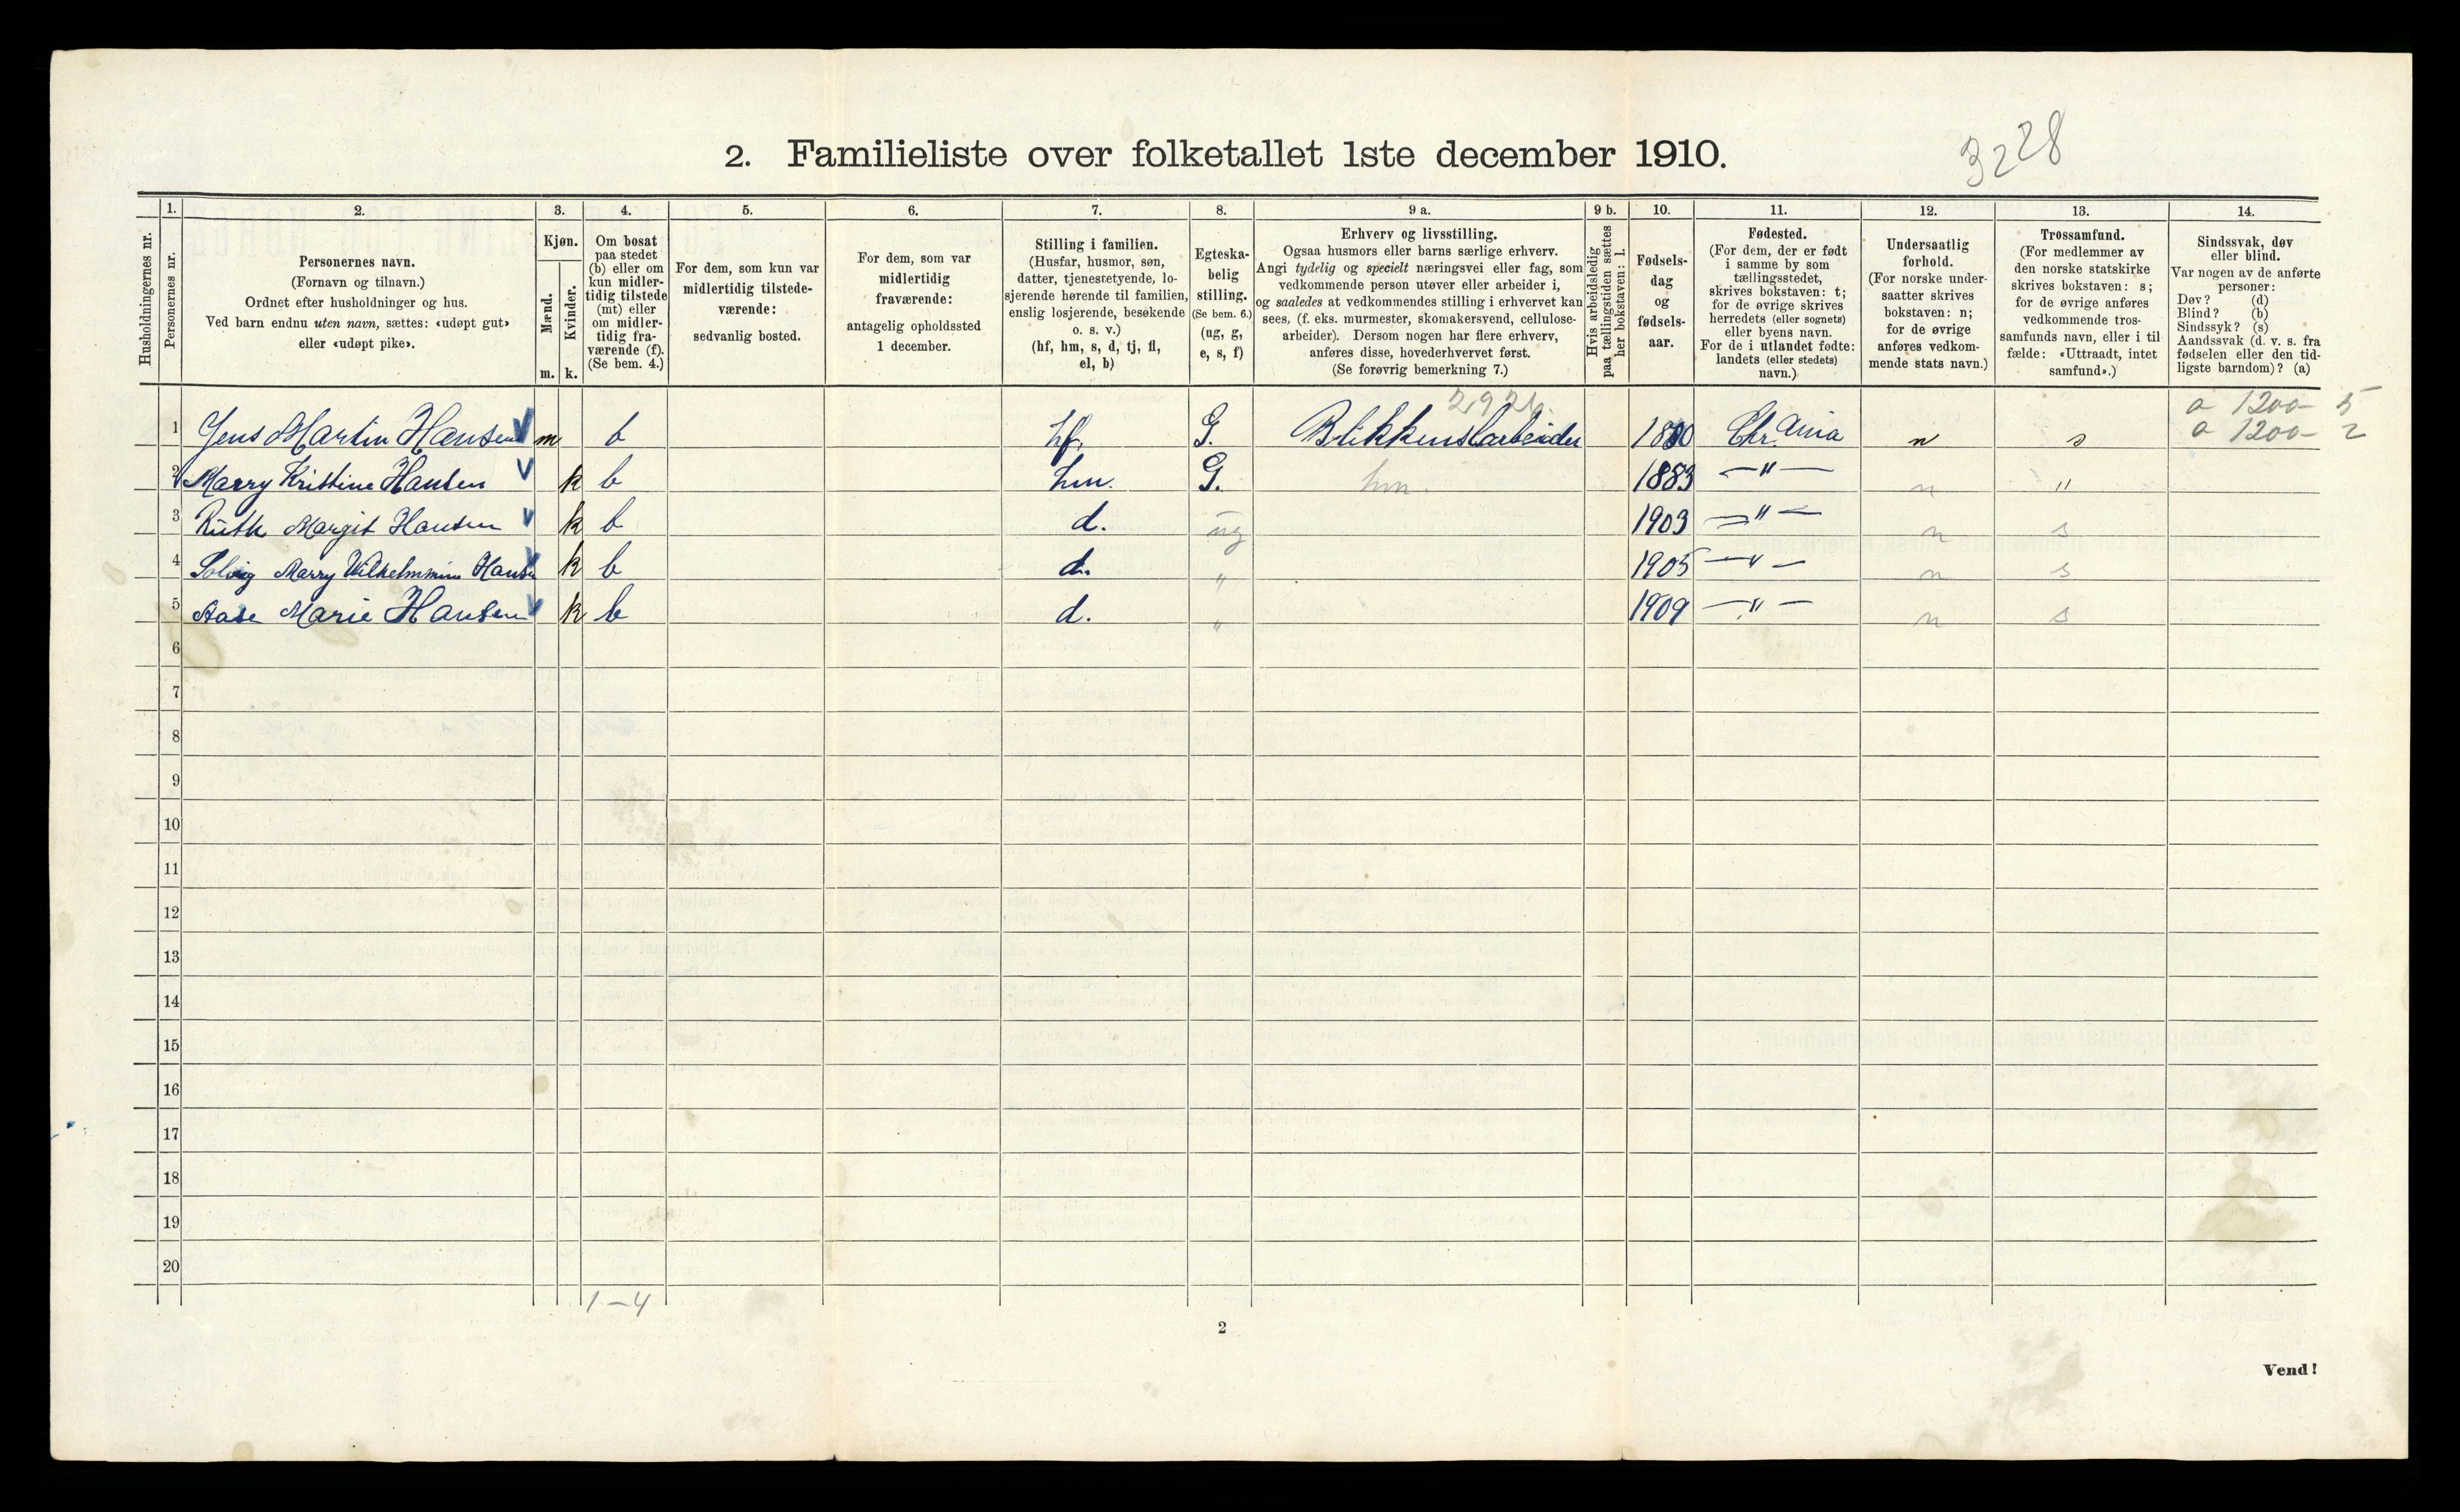 3228
2. Familieliste over folketallet 1ste december 1910.
Husholdningernes nr.
1. Personernes nr.
2. Personernes navn. (Fornavn og tilnavn.) Ordnet efter husholdninger og hus. Ved barn endnu uten navn, sættes: «udøpt gut» eller «udøpt pike».
3. Kjøn. Mænd. m. Kvinder. k.
4. Om bosat paa stedet (b) eller om kun midlertidig tilstede (mt) eller om midlertidig fraværende (f). (Se bem. 4.)
5. For dem, som kun var midlertidig tilstedeværende: sedvanlig bosted.
6. For dem, som var midlertidig fraværende: antagelig opholdssted 1 december.
7. Stilling i familien. (Husfar, husmor, søn, datter, tjenestetyende, losjerende hørende til familien, enslig losjerende, besøkende o. s. v.) (hf, hm, s, d, tj, fl, el, b)
8. Egteskabelig stilling. (Se bem. 6.) (ug, g, e, s, f)
9 a. Erhverv og livsstilling. Ogsaa husmors eller barns særlige erhverv. Angi tydelig og specielt næringsvei eller fag, som vedkommende person utøver eller arbeider i, og saaledes at vedkommendes stilling i erhvervet kan sees, (f. eks. murmester, skomakersvend, cellulosearbeider). Dersom nogen har flere erhverv, anføres disse, hovederhvervet først. (Se forøvrig bemerkning 7.)
9 b. Hvis arbeidsledig paa tællingstiden sættes her bokstaven: l.
10. Fødselsdag og fødselsaar.
11. Fødested. (For dem, der er født i samme by som tællingsstedet, skrives bokstaven: t; for de øvrige skrives herredets (eller sognets) eller byens navn. For de i utlandet fødte: landets (eller stedets) navn.)
12. Undersaatlig forhold. (For norske undersaatter skrives bokstaven: n; for de øvrige anføres vedkommende stats navn.)
13. Trossamfund. (For medlemmer av den norske statskirke skrives bokstaven: s; for de øvrige anføres vedkommende trossamfunds navn, eller i tilfælde: «Uttraadt, intet samfund».)
14. Sindssvak, døv eller blind. Var nogen av de anførte personer: Døv? (d) Blind? (b) Sindssyk? (s) Aandssvak (d. v. s. fra fødselen eller den tidligste barndom)? (a)
a 1200- 5
a 1200- 2
1 Jens Martin Hansen m b hf. G. Blikkenslarbeider 1880 Chr.ania n s
2 Marry Kristine Hansen k b hm. G. hm. 1883 —"— n "
3 Ruth Margit Hansen k b d. ug 1903 —"— n s
4 Solvig Marry Wilhelmmine Hansen k b d. " 1905 —"— n s
5 Aase Marie Hansen k b d. " 1909 —"— n s
6
7
8
9
10
11
12
13
14
15
16
17
18
19
20
1-4
2
Vend!